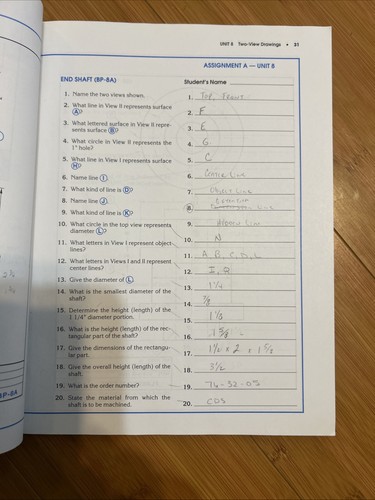 UNIT 8 Two-View Drawings • 31
ASSIGNMENT A — UNIT 8
END SHAFT (BP-8A)
Student's Name
1. Name the two views shown.
1. Top, Front
2. What line in View II represents surface
Ⓐ?
2. F
3. What lettered surface in View II repre-
sents surface Ⓑ?
3. E
4. What circle in View II represents the
1" hole?
4. G
5. What line in View I represents surface
Ⓗ?
5. C
6. Name line Ⓘ.
6. Center Line
7. What kind of line is Ⓓ?
7. Object Line
8. Name line Ⓙ.
8. Line
9. What kind of line is Ⓚ?
9. Hidden Line
10. What circle in the top view represents
diameter Ⓛ?
10. N
11. What letters in View I represent object
lines?
11. A, B, C, D, L
12. What letters in Views I and II represent
center lines?
12. I,
13. Give the diameter of Ⓛ.
13. 1 1/4
14. What is the smallest diameter of the
shaft?
14. 7/8
15. Determine the height (length) of the
1 1/4" diameter portion.
15. 1 1/8
16. What is the height (length) of the rec-
tangular part of the shaft?
16. 1 5/8
17. Give the dimensions of the rectangu-
lar part.
17. 1 1/2 x 2 x 1 5/8
18. Give the overall height (length) of the
shaft.
18. 3 1/2
19. What is the order number?
19. 76-32-05
20. State the material from which the
shaft is to be machined.
20. CDS
BP-8A